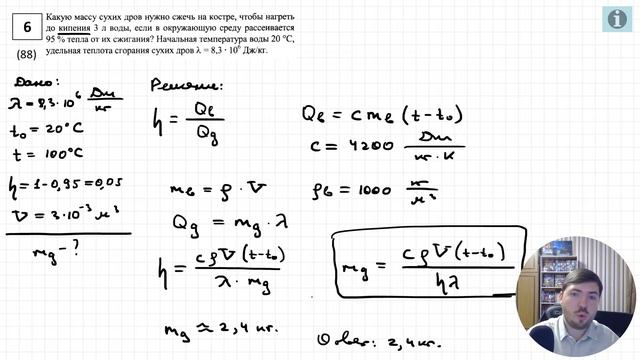 6
(88)
Какую массу сухих дров нужно сжечь на костре, чтобы нагреть
до кипения 3 л воды, если в окружающую среду рассеивается
95 % тепла от их сжигания? Начальная температура воды 20 °С,
удельная теплота сгорания сухих дров λ = 8,3 · 10⁶ Дж/кг.
Дано:
λ = 8,3·10⁶ Дж/кг
t₀ = 20°C
t = 100°C
η = 1-0,95 = 0,05
V = 3·10⁻³ м³
mд - ?
Решение:
η = Qв/Qд
mв = ρ · V
Qд = mд · λ
η = cρV(t-t₀)/λ · mд
mд ≈ 2,4 кг.
Qв = cmв(t-t₀)
c = 4200 Дж/кг·К
ρв = 1000 кг/м³
mд = cρV(t-t₀)/ηλ
Ответ: 2,4 кг.